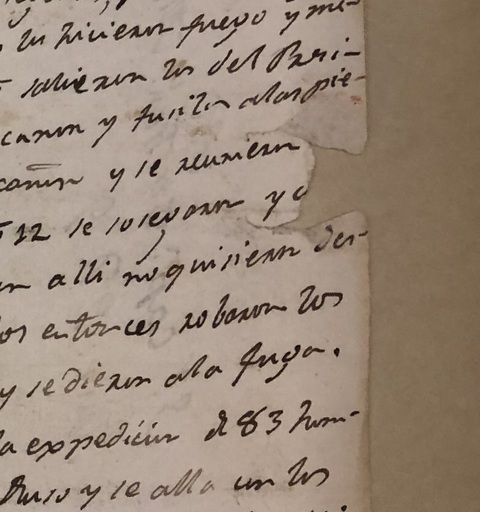 los hicieron fuego y me-
salieron los del Presi-
cañon y fusil a las pie-
cañon y se reunieron
12 se sosegaron y o
alli no quisieron des-
los entonces robaron los
y se dieron a la fuga.
la expedicion de 83 hom-
Ruso y se alla con los